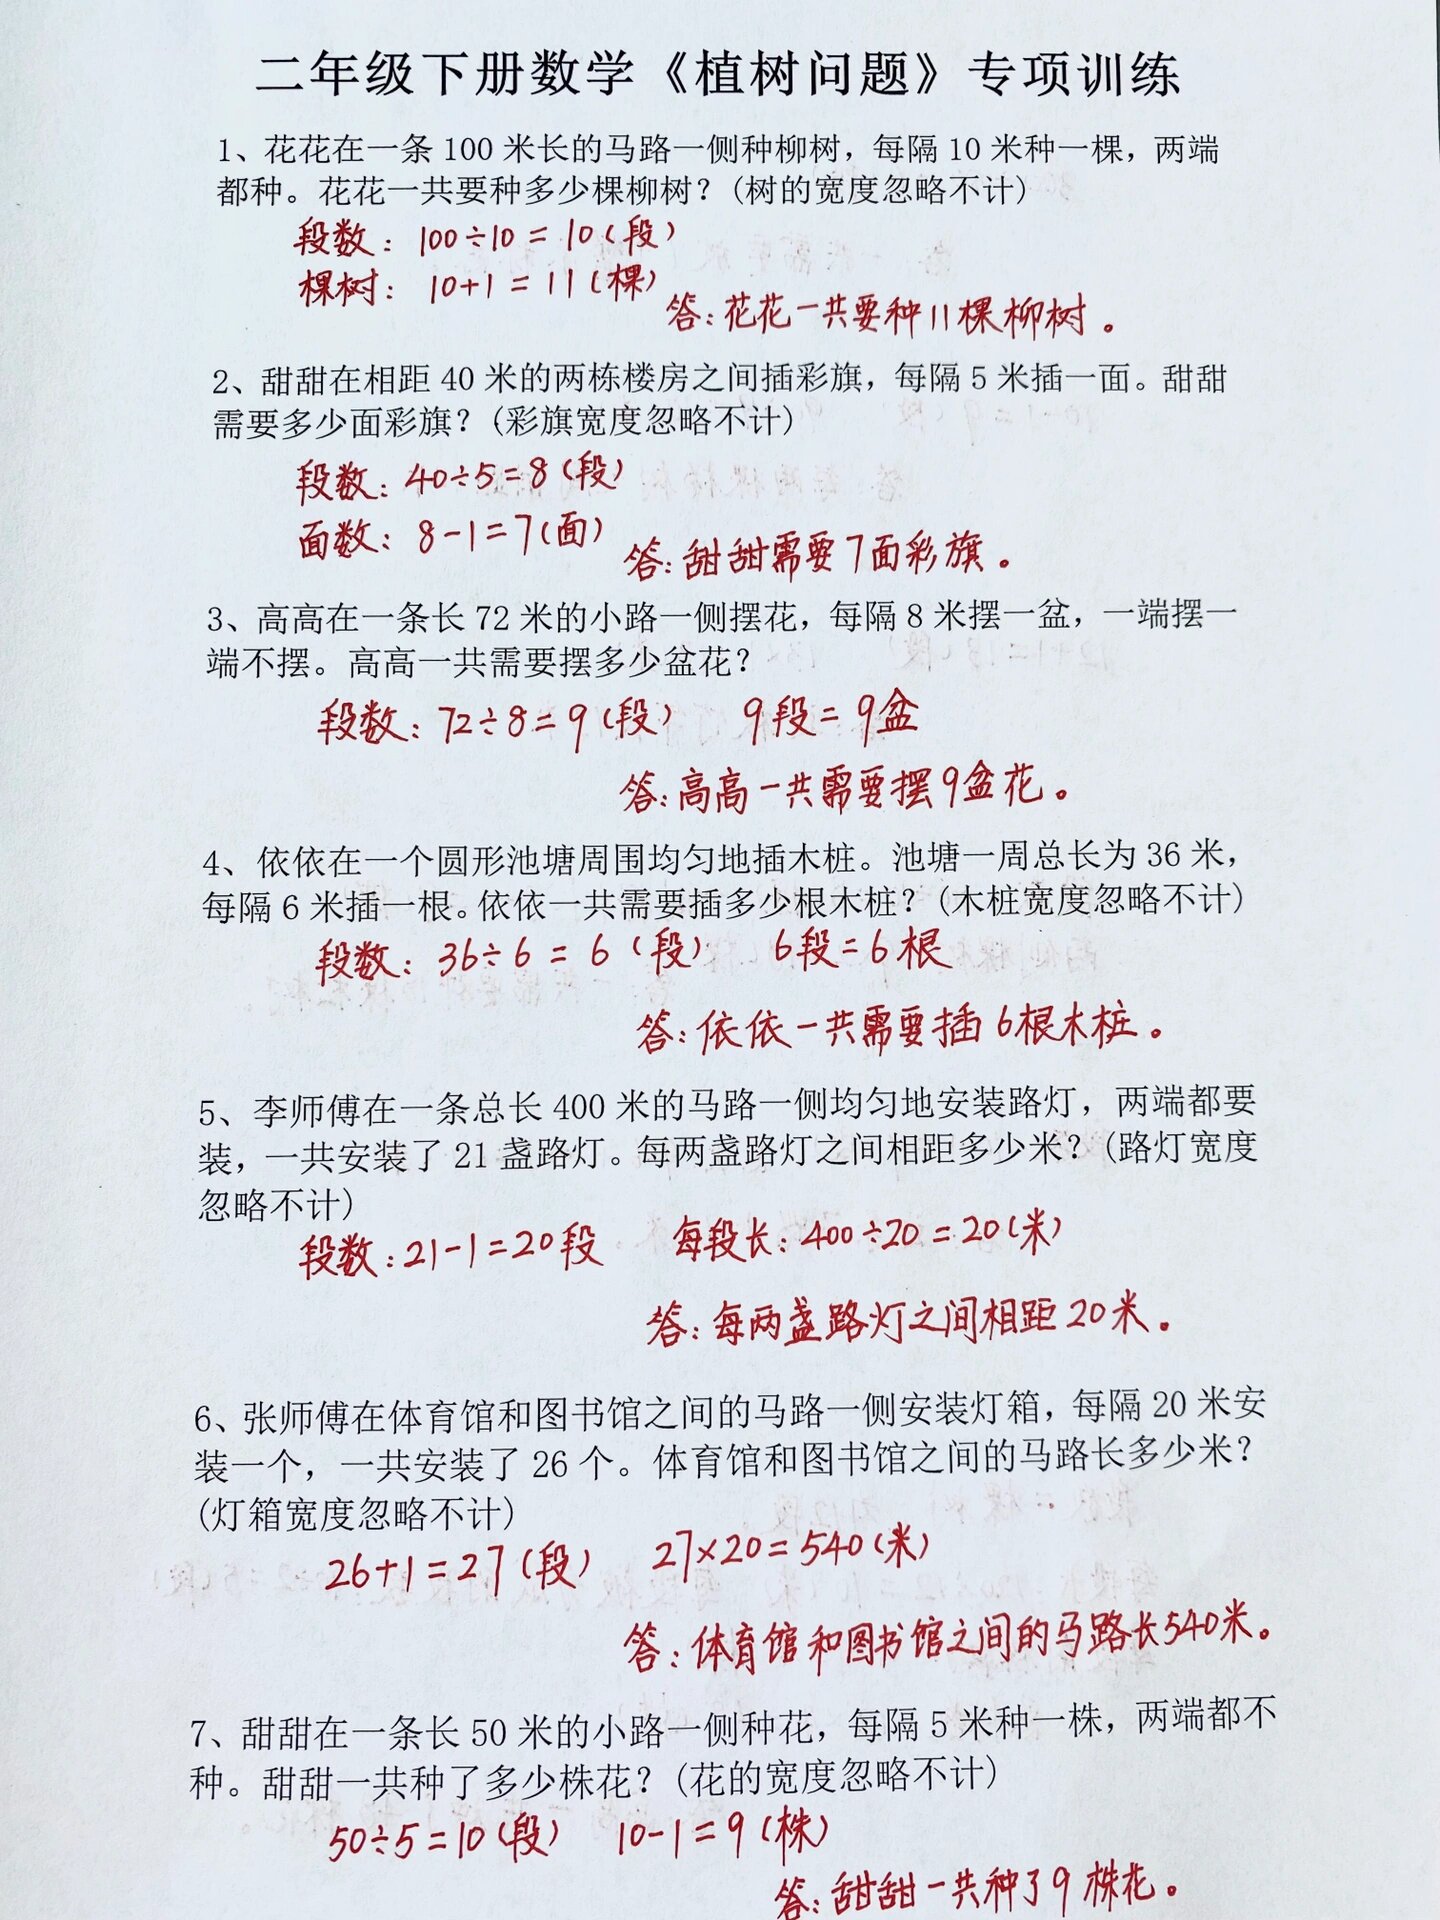 二年级下册数学《植树问题》专项训练
1、花花在一条 100 米长的马路一侧种柳树，每隔 10 米种一棵，两端
都种。花花一共要种多少棵柳树？(树的宽度忽略不计)
段数：100÷10＝10(段)
棵树：10+1＝11(棵)
答：花花一共要种11棵柳树。
2、甜甜在相距 40 米的两栋楼房之间插彩旗，每隔 5 米插一面。甜甜
需要多少面彩旗？(彩旗宽度忽略不计)
段数：40÷5＝8(段)
面数：8-1＝7(面)
答：甜甜需要7面彩旗。
3、高高在一条长 72 米的小路一侧摆花，每隔 8 米摆一盆，一端摆一
端不摆。高高一共需要摆多少盆花？
段数：72÷8＝9(段) 9段＝9盆
答：高高一共需要摆9盆花。
4、依依在一个圆形池塘周围均匀地插木桩。池塘一周总长为 36 米，
每隔 6 米插一根。依依一共需要插多少根木桩？(木桩宽度忽略不计)
段数：36÷6＝6(段) 6段＝6根
答：依依一共需要插6根木桩。
5、李师傅在一条总长 400 米的马路一侧均匀地安装路灯，两端都要
装，一共安装了 21 盏路灯。每两盏路灯之间相距多少米？(路灯宽度
忽略不计)
段数：21-1＝20段 每段长：400÷20＝20(米)
答：每两盏路灯之间相距20米。
6、张师傅在体育馆和图书馆之间的马路一侧安装灯箱，每隔 20 米安
装一个，一共安装了 26 个。体育馆和图书馆之间的马路长多少米？
(灯箱宽度忽略不计)
26+1＝27(段) 27×20＝540(米)
答：体育馆和图书馆之间的马路长540米。
7、甜甜在一条长 50 米的小路一侧种花，每隔 5 米种一株，两端都不
种。甜甜一共种了多少株花？(花的宽度忽略不计)
50÷5＝10(段) 10-1＝9(株)
答：甜甜一共种了9株花。